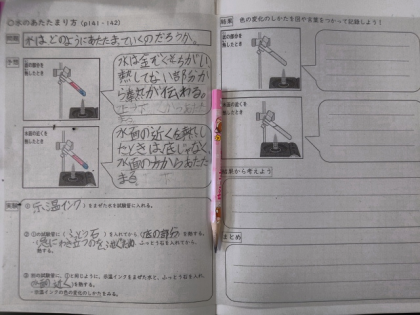 ○水のあたたまり方(p141-142)
問題 水は、どのようにあたたまっていくのだろうか。
予想
底の部分を
熱したとき
水は金ぞくとちがい
熱してない部分か
ら熱が伝わる。
水面の近くを
熱したとき
水面の近くを熱し
たときは底じゃなく
水面の方からあたた
まる
実験 ① (示温インク)をまぜた水を試験管に入れる。
② ①の試験管に(ふっとう石)を入れてから(底の部分)を熱する。
急にわき立つのを
ふっとう石を入れてから、
熱する。
③ 別の試験管に、①と同じように、示温インクをまぜた水と、ふっとう石を入れ、
(水面近く)を熱する。
→示温インクの色の変化のしかたをみる。
結果 色の変化のしかたを図や言葉をつかって記録しよう!
底の部分を
熱したとき
水面の近くを
熱したとき
結果から考えよう
まとめ